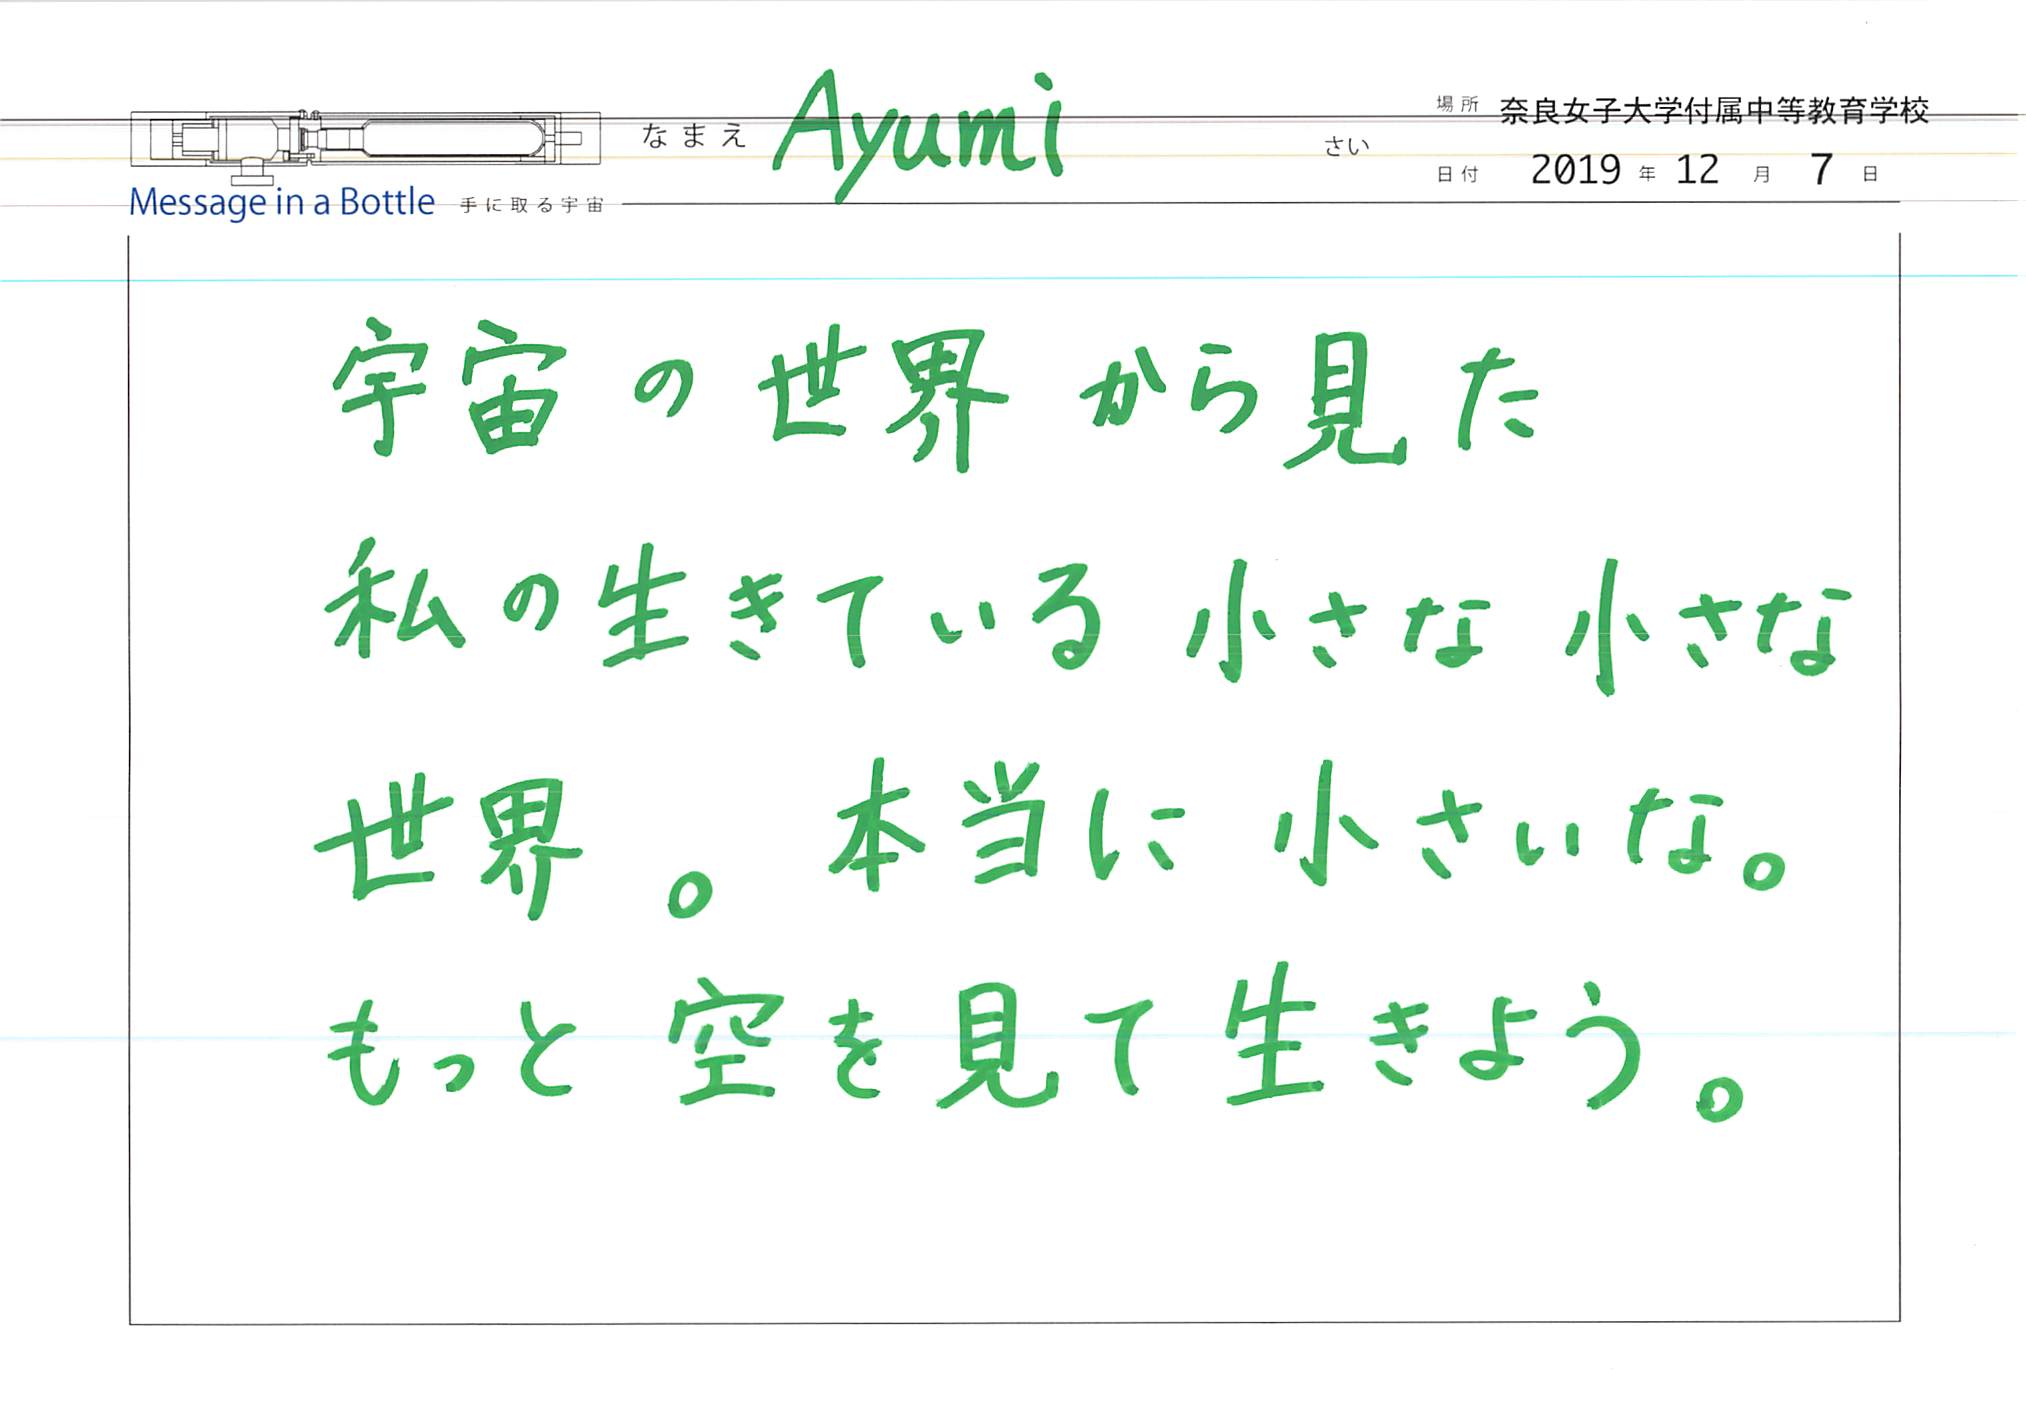 なまえ Ayumi さい
場所 奈良女子大学付属中等教育学校
日付 2019 年 12 月 7 日
Message in a Bottle 手に取る宇宙
宇宙の世界から見た
私の生きている小さな小さな
世界。本当に小さいな。
もっと空を見て生きよう。